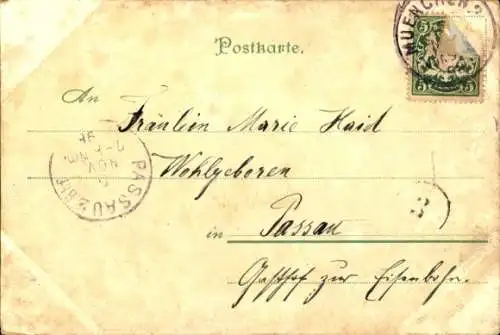 MUENCHEN 2
5 5
Postkarte.
An Fräulein Marie Haid
Wohlgeboren
in Passau
Gasthof zur Eisenbahn.
PASSAU 2 BHF
NOV
Nm.